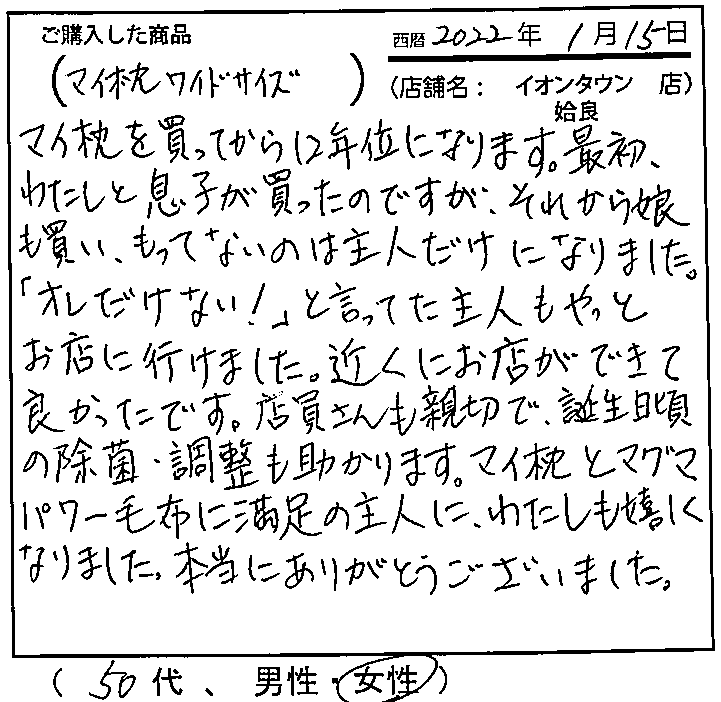 ご購入した商品
西暦 2022年 1月15日
(マイ枕ワイドサイズ)
(店舗名: イオンタウン 姶良 店)
マイ枕を買ってから12年位になります。最初、
わたしと息子が買ったのですが、それから娘
も買い、もってないのは主人だけになりました。
「オレだけない!」と言ってた主人もやっと
お店に行けました。近くにお店ができて
良かったです。店員さんも親切で、誕生日頃
の除菌・調整も助かります。マイ枕とマグマ
パワー毛布に満足の主人に、わたしも嬉しく
なりました。本当にありがとうございました。
(50代、男性・女性)